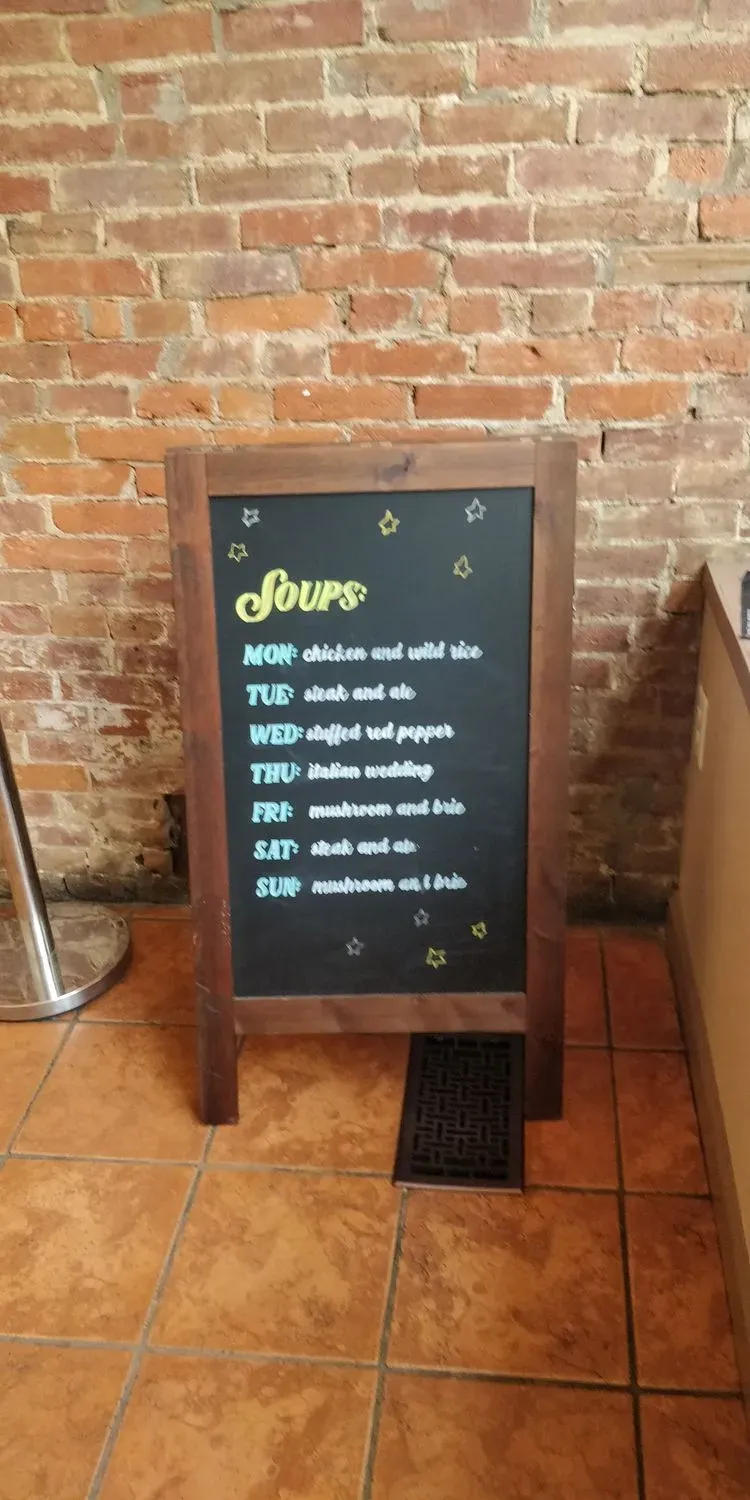 Soups:
MON: chicken and wild rice
TUE: steak and ale
WED: stuffed red pepper
THU: italian wedding
FRI: mushroom and brie
SAT: steak and ale
SUN: mushroom and brie